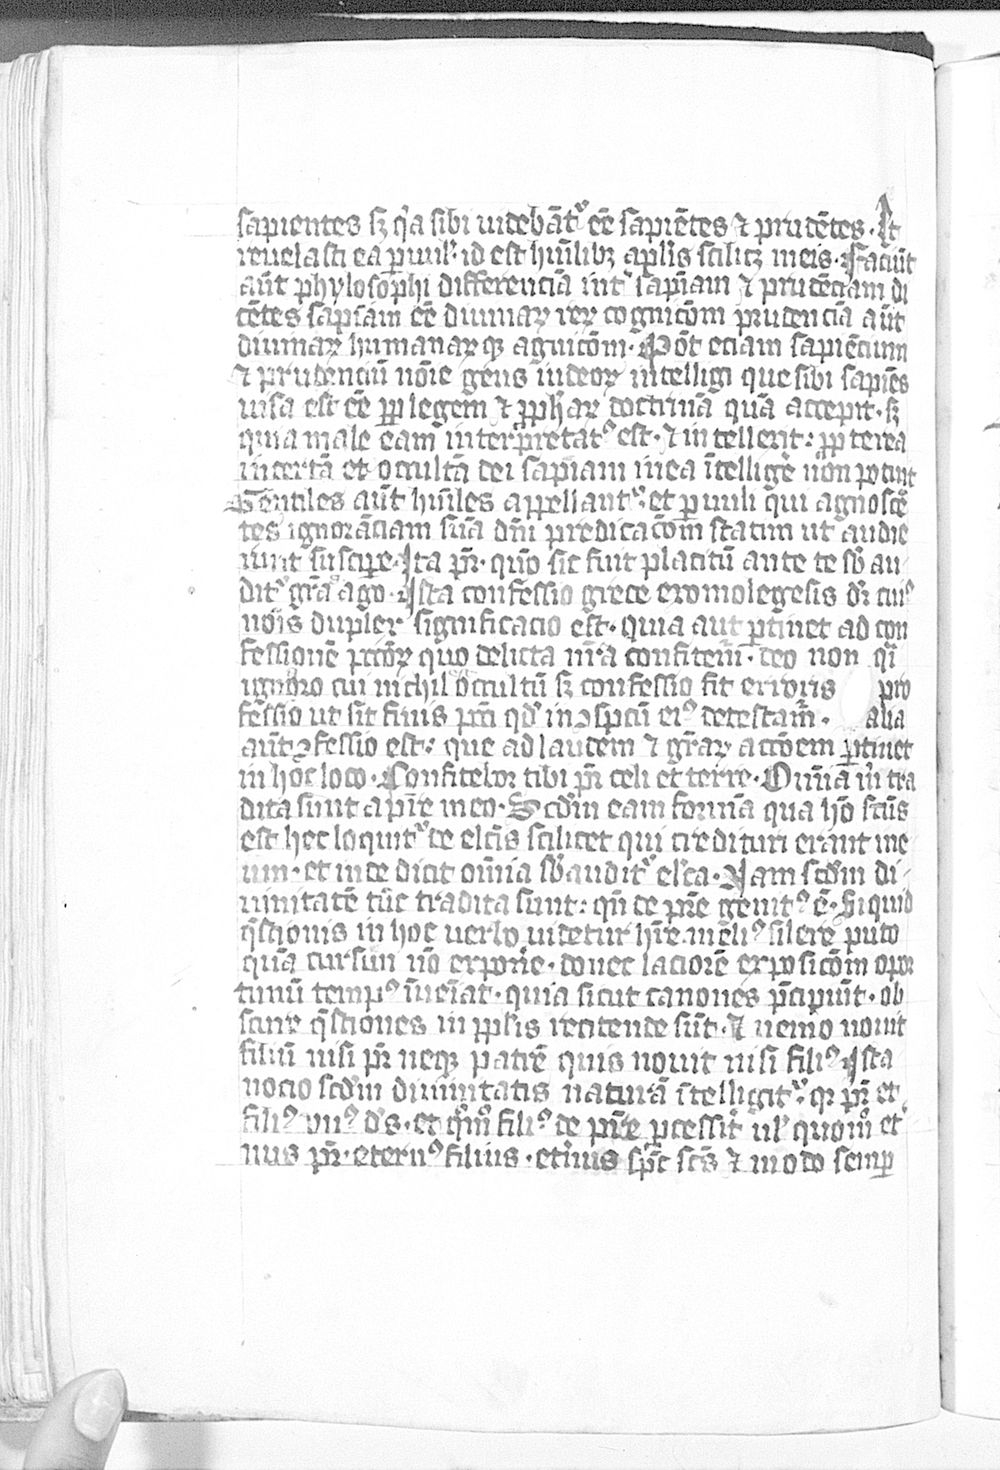 sapientes sꝫ q̇a sibi uidebāt᷑ eē sapiētes ⁊ prudētes · Et
reuelasti ea paruul᷒ · id est hūilibꝫ ap̄lis scilicꝫ meis · Faciūt
aūt phylosophi differenciā int᷑ sapiꝰam ⁊ prudēciam di
cētes sapīam eē diuinaꝝ reꝝ cognicōm prudenciā aūt
diuinaꝝ humanaꝝqꝫ agnicōm · Pōt eciam sapiēcium
⁊ prudenciū nōie gens iudeoꝝ intelligi que sibi sapiēs
uisa est eē ꝓp̄ legem ⁊ ꝓph̄aꝝ doctrinā quā accepit · sꝫ
quia male eam interp̄retatꝰ est · ⁊ intellexit : ꝓpterea
incertā et occultā dei sapīam in ea ītelligē nōn potuit
Gentiles aūt hūiles appellant᷑ · et paruuli qui agnoscē
tes ignorāciam suā dn̄i predicacōm statim ut audie
runt suscipe᷑ · Ita pr̄ · qm̄ sic fuit placitū ante te sb̄ au
dit᷑ gr̄as ago · Ista confessio grece exomolegesis dr̄ cuiꝰ
nōis duplex significacio est · quia aut ꝑtinet ad con
fessionē pc̄coꝝ quo delicta nr̄a confitem᷑ · deo non q̄i
ignoro cui nichil occultū sꝫ confessio fit erroris pro
fessio ut sit finis pcc̄i qd᷑ in ꝯspcū eiꝰ detestam᷑ · alia
aūt ꝯfessio est : que ad laudem ⁊ gr̄aꝝ accōem ꝑtinet
in hoc loco · Confitebor tibi pr̄ celi et terre · Omīa m̄ tra
dita sunt a p̄re meo · Scd̄m eam formā qua hō scūs
est hec loquit᷑ de elc̄is scilicet qui credituri erant in e
um · et inde dicit omīa sb̄audit᷑ elc̄a · Nam scd̄m di
uinitatē tūc tradita sunt : qn̄ de p̄re genitꝰ ē · Siquid
q̄stionis in hoc uerbo uidetur hr̄e · meliꝰ silere puto
quā cursim nō expone᷑ · donec laciorē exposicōm opor
tunū tempꝰ īueīat · quia sicut canones p̄cipiūt · ob
scure q̄stiones in pp̄lis recitende sūt · Et nemo nouit
filiū nisi pr̄ neqꝫ patrē quis nouit nisi filiꝰ · Ista
nocio scd̄m diuinitatis naturā ītelligit᷑ · qꝛ pr̄ et
filiꝰ vnꝰ d̄s · et q̇mͦ filiꝰ de p̄re ꝓcessit ul᷒ quomͦ et
nus pr̄ · eternꝰ filius · et̄nus sp̄c scs̄ ⁊ modo semꝑ